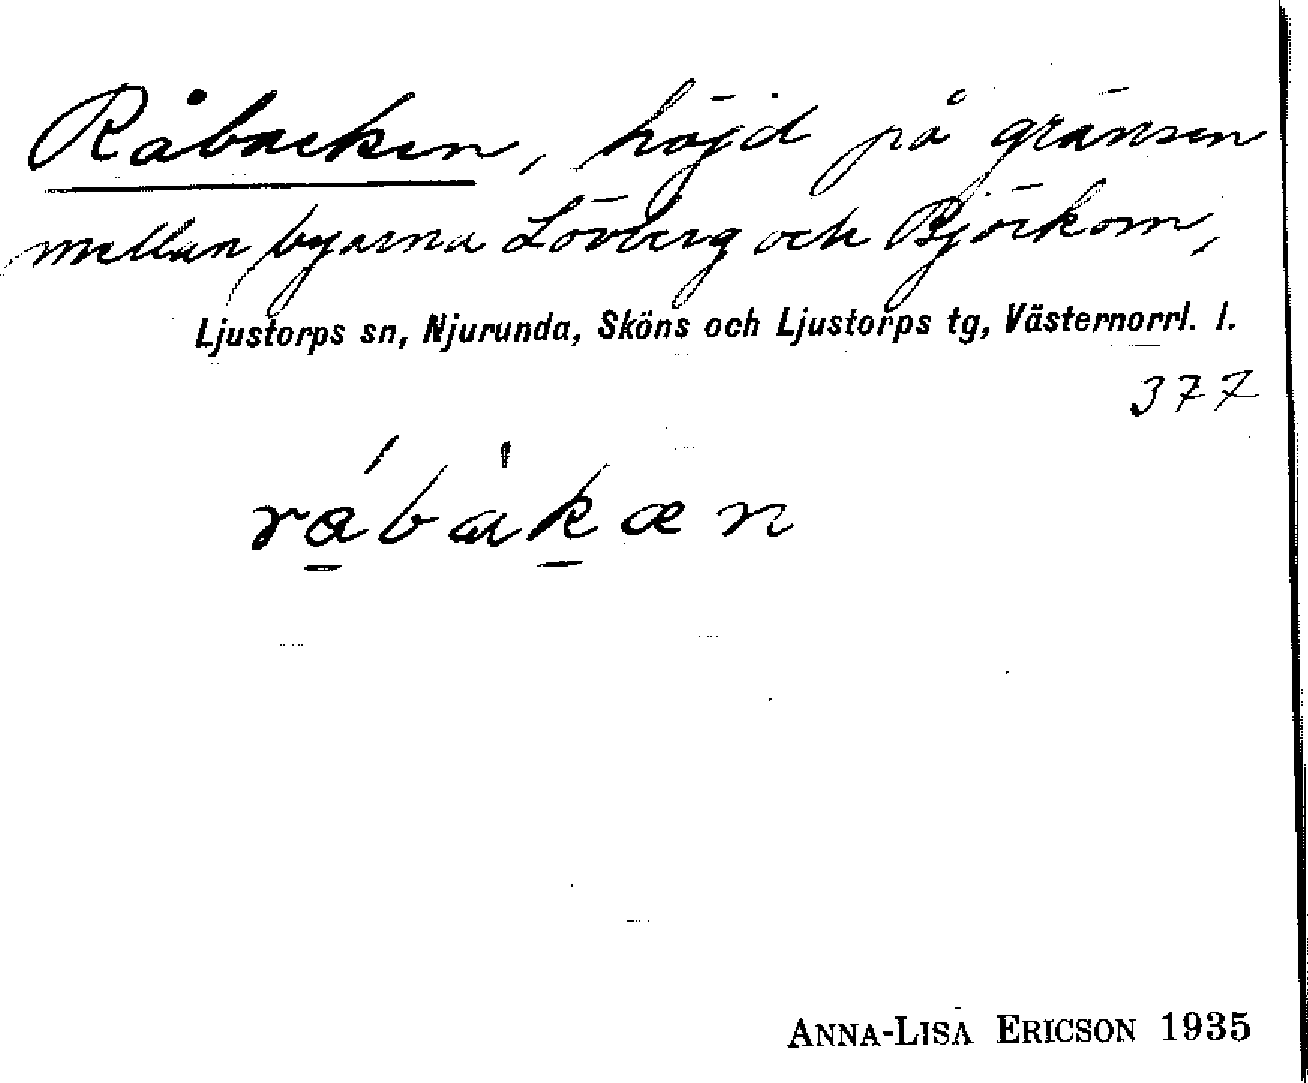 Råbacken, höjd på gränsen
mellan byarna Lövberg och Björkom,
Ljustorps sn, Njurunda, Sköns och Ljustorps tg, Västernorrl. l.
377
råbàkæn
ANNA-LISA ERICSON 1935